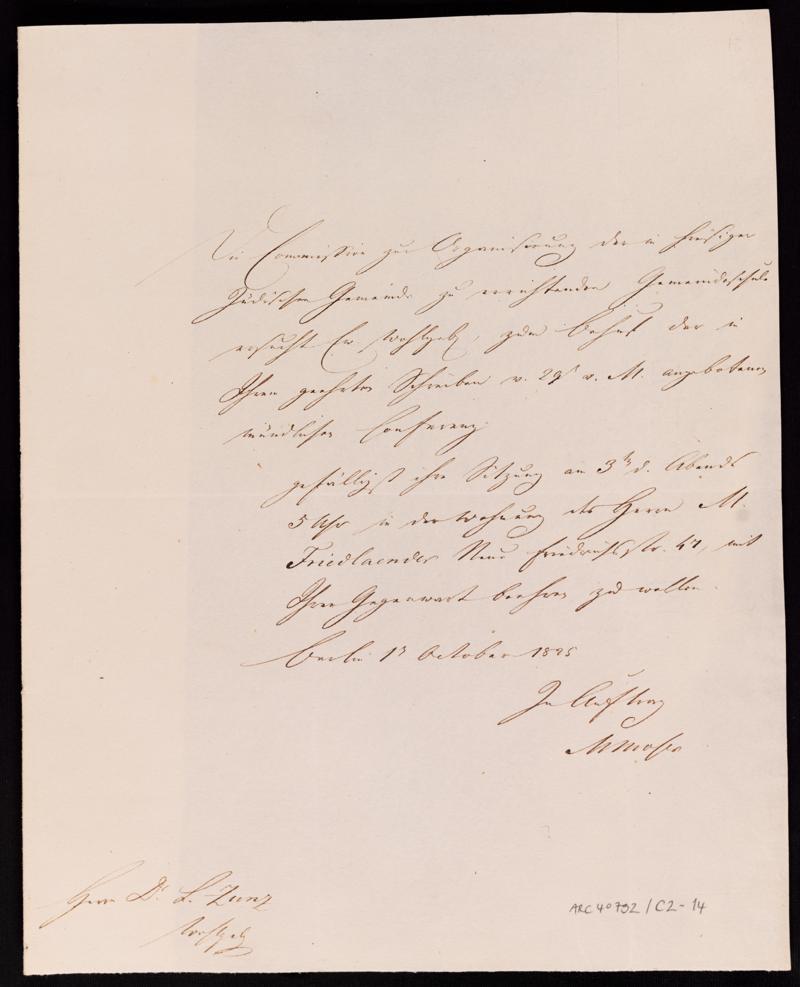 Die Commission zur Organisirung der in hiesiger
Jüdischen Gemeinde zu errichtenden Gemeindeschule
ersucht Ew Wohlgeb, zum Behuf der in
Ihrem geehrten Schreiben v. 29t v. M. angebotenen
mündlichen Conferenz
gefälligst ihre Sitzung am 3tn d. Abends
5 Uhr in der Wohnung des Herrn M.
Friedlaender Neue Friedrichsstr. 47, mit
Ihrer Gegenwart beehren zu wollen.
Berlin 1t October 1825
Im Auftrag
M Moser
Herrn Dr. L. Zunz
Wohlgeb
ARC 4° 792 / C2-14